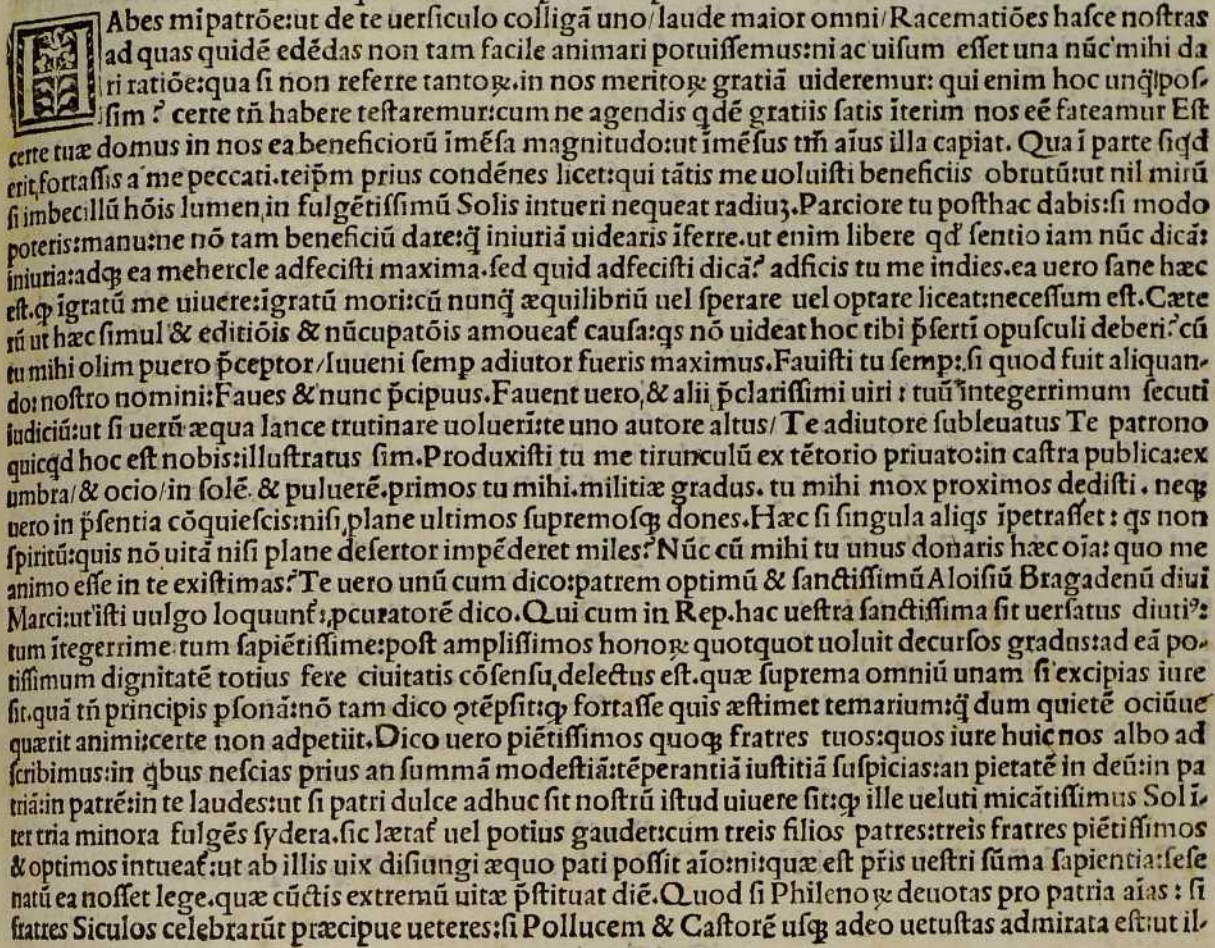 HAbes mi patrōe:ut de te uersiculo colligā uno/laude maior omni/Racematiōes hasce nostras
ad quas quidē edēdas non tam facile animari potuissemus:ni ac uisum esset una nūc mihi da
ri ratiōe:qua si non referre tantoꝝ.in nos meritoꝝ gratiā uideremur: qui enim hoc unq̄pos-
sim ? certe tñ habere testaremur:cum ne agendis qdē gratiis satis īterim nos eē fateamur Est
certe tuæ domus in nos ea beneficiorū īmēsa magnitudo:ut īmēsus tm̄ aīus illa capiat. Qua ī parte siqd
erit,fortassis a me peccati.teip̄m prius condēnes licet:qui tātis me uoluisti beneficiis obrutū:ut nil mirū
si imbecillū hōis lumen,in fulgētissimū Solis intueri nequeat radiuꝫ.Parciore tu posthac dabis:si modo
poteris:manu:ne nō tam beneficiū dare:q̄ iniuriā uidearis īferre.ut enim libere qd' sentio iam nūc dicā:
iniuria:adqꝫ ea mehercle adfecisti maxima.sed quid adfecisti dicā? adficis tu me indies.ea uero sane hæc
est.ꝙ īgratū me uiuere:īgratū mori:cū nunq̄ æquilibriū uel sperare uel optare liceat:necessum est.Cæte
rū ut hæc simul & editiōis & nūcupatōis amoueat᷑ causa:qs nō uideat hoc tibi p̄ferti opusculi deberi?cū
tu mihi olim puero p̄ceptor/Iuueni semp adiutor fueris maximus.Fauisti tu semp:si quod fuit aliquan-
do:nostro nomini:Faues & nunc p̄cipuus.Fauent uero,& alii p̄clarissimi uiri : tuū integerrimum secuti
iudiciū:ut si uerū æqua lance trutinare uoluerīt:te uno autore altus/ Te adiutore subleuatus Te patrono
quicqd hoc est nobis:illustratus sim.Produxisti tu me tirunculū ex tētorio priuato:in castra publica:ex
umbra/& ocio/in solē. & puluerē.primos tu mihi.militiæ gradus. tu mihi mox proximos dedisti . neqꝫ
uero in p̄sentia cōquiescis:nisi,plane ultimos supremosqꝫ dones.Hæc si singula aliqs īpetrasset : qs non
spiritū:quis nō uitā nisi plane desertor impēderet miles?Nūc cū mihi tu unus donaris hæc oīa: quo me
animo esse in te existimas?Te uero unū cum dico:patrem optimū & sanctissimū Aloisiū Bragadenū diui
Marci:ut isti uulgo loquunt᷑:ꝓcuratorē dico.Qui cum in Rep.hac uestra sanctissima sit uersatus diutiꝰ:
tum ītegerrime.tum sapiētissime:post amplissimos honoꝝ quotquot uoluit decursos gradus:ad eā po-
tissimum dignitatē totius fere ciuitatis cōsensu,delectus est.quæ suprema omniū unam si excipias iure
sit.quā tñ principis psonā:nō tam dico ꝯtēpsit:ꝙ fortasse quis æstimet temarium:q̄ dum quietē ociūue
quærit animi:certe non adpetiit.Dico uero piētissimos quoqꝫ fratres tuos:quos iure huic nos albo ad
scribimus:in qbus nescias prius an summā modestiā:tēperantiā iustitiā suspicias:an pietatē in deū:in pa
triā:in patrē:in te laudes:ut si patri dulce adhuc sit nostrū istud uiuere sit:ꝙ ille ueluti micātissimus Sol ī-
ter tria minora fulgēs sydera.sic lætat᷑ uel potius gaudet:cum treis filios patres:treis fratres piētissimos
& optimos intueat᷑:ut ab illis uix disiungi æquo pati possit aīo:ni:quæ est pr̄is uestri sūma sapientia:sese
natū ea nosset lege.quæ cūctis extremū uitæ p̄stituat diē.Quod si Philenoꝝ deuotas pro patria aīas : si
fratres Siculos celebrarūt præcipue ueteres:si Pollucem & Castorē usqꝫ adeo uetustas admirata est:ut il-